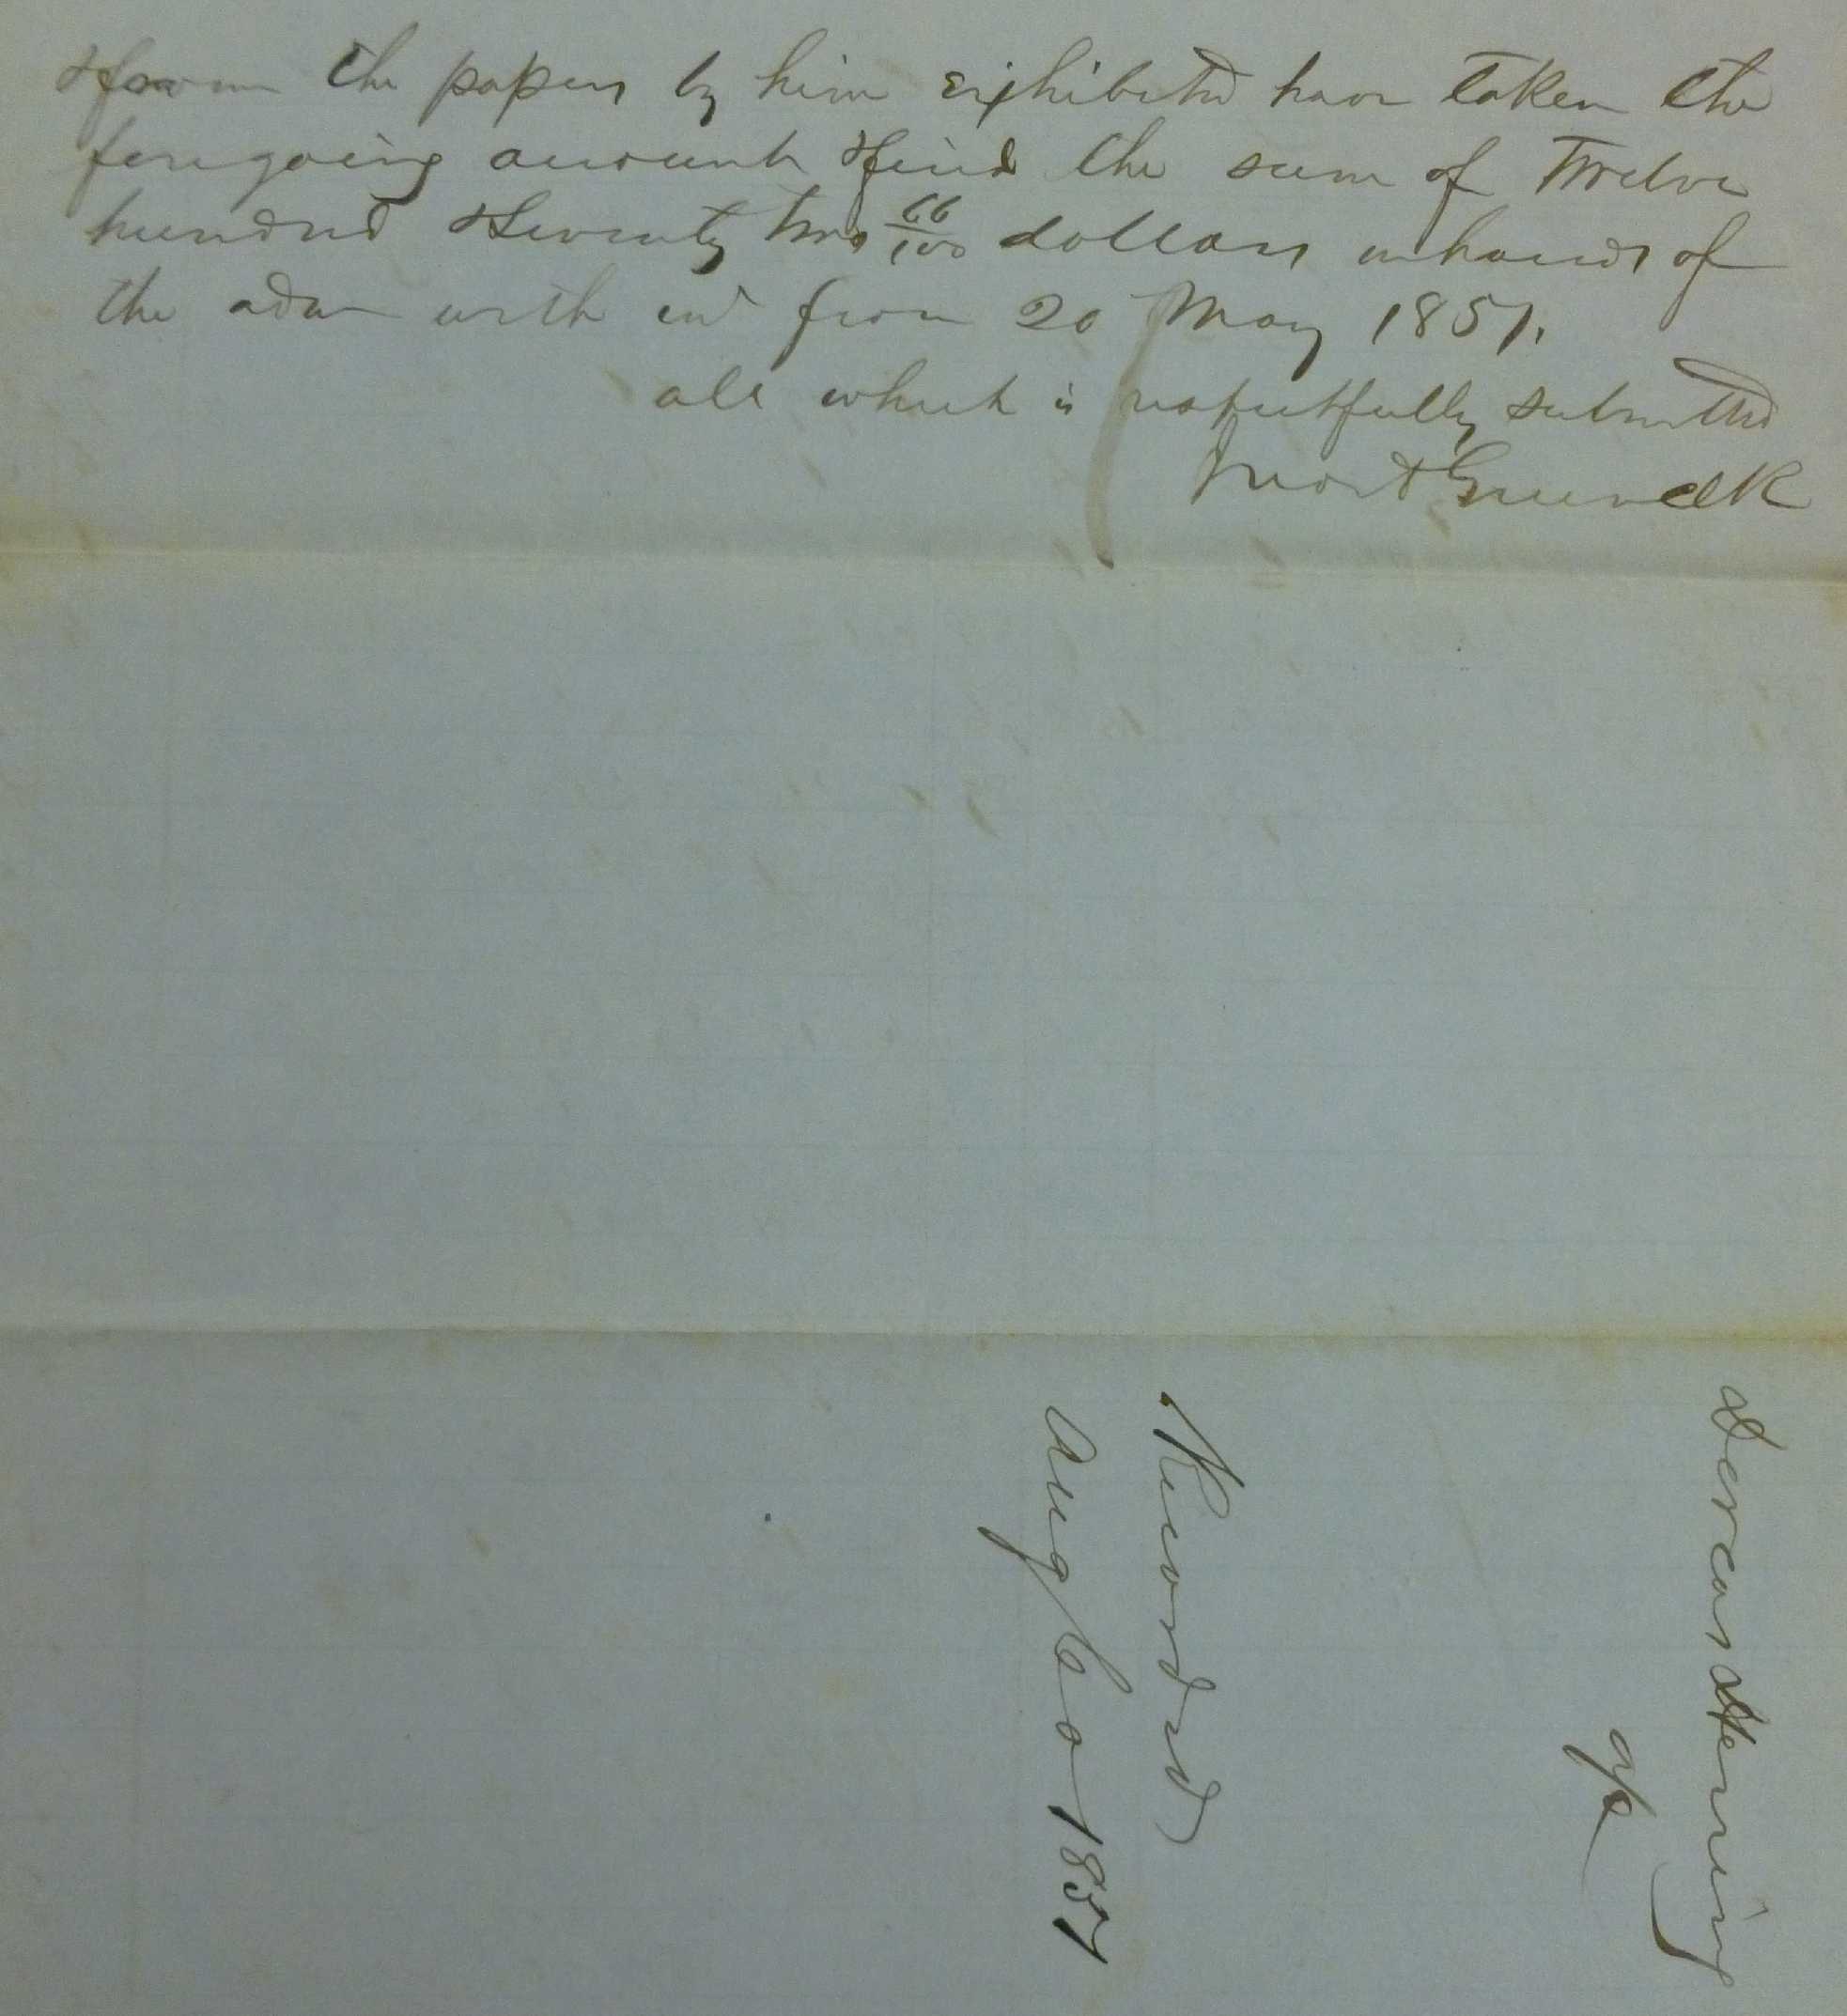 & from the papers by him exhibited have taken the
foregoing account & find the sum of Twelve
hundred & Seventy two 66/100 dollars in hands of
the adm with int from 20 May 1857.
all which is respectfully submitted
Green clk
Duncan Herring
a/c
Recorded
Aug Co 1857